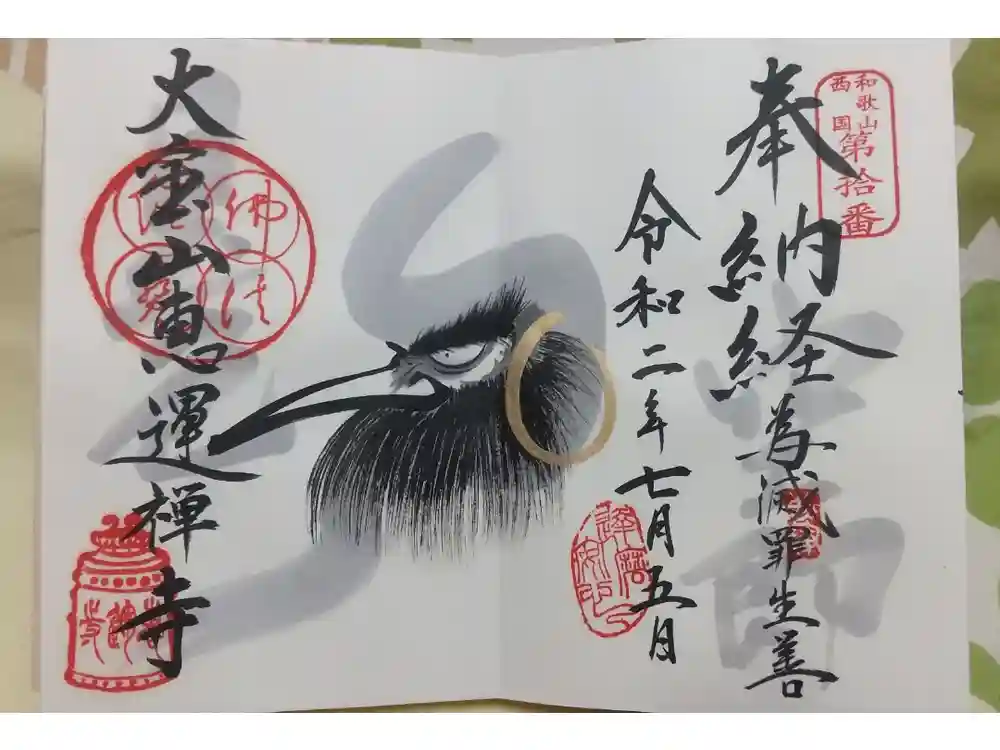 和歌山
西国
第拾番
奉納経
為滅罪生善
令和二年七月五日
大宝山恵運禅寺